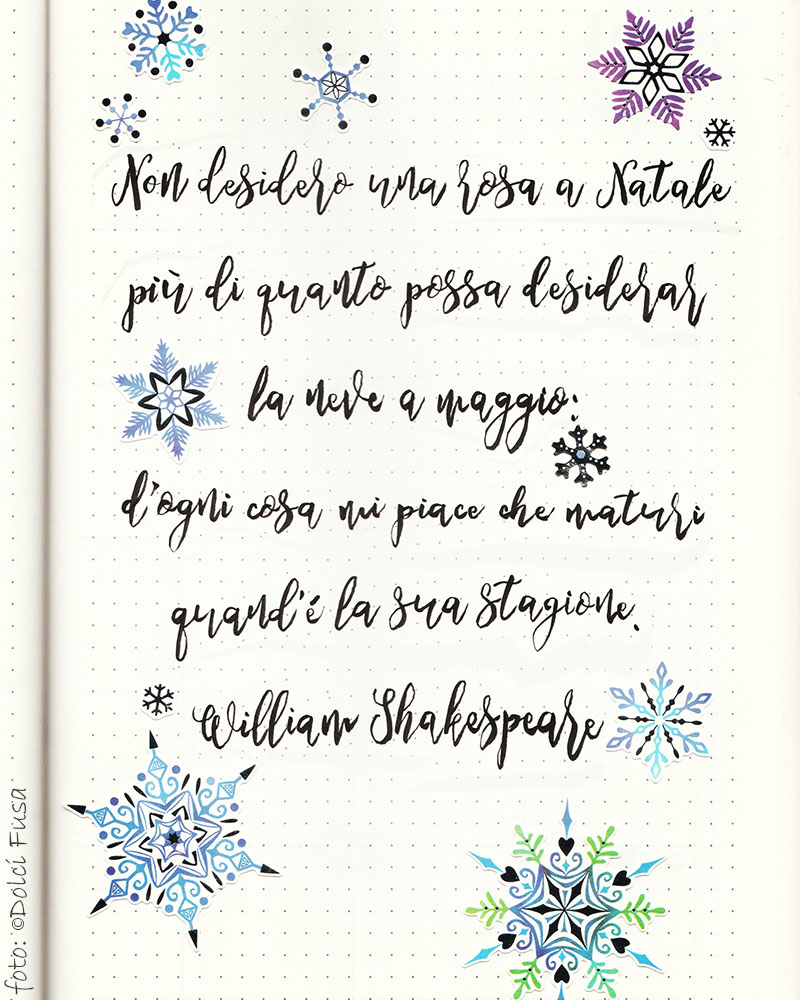 Non desidero una rosa a Natale
più di quanto possa desiderar
la neve a maggio:
d'ogni cosa mi piace che maturi
quand'é la sua stagione.
William Shakespeare
foto: ©Dolci Fusa